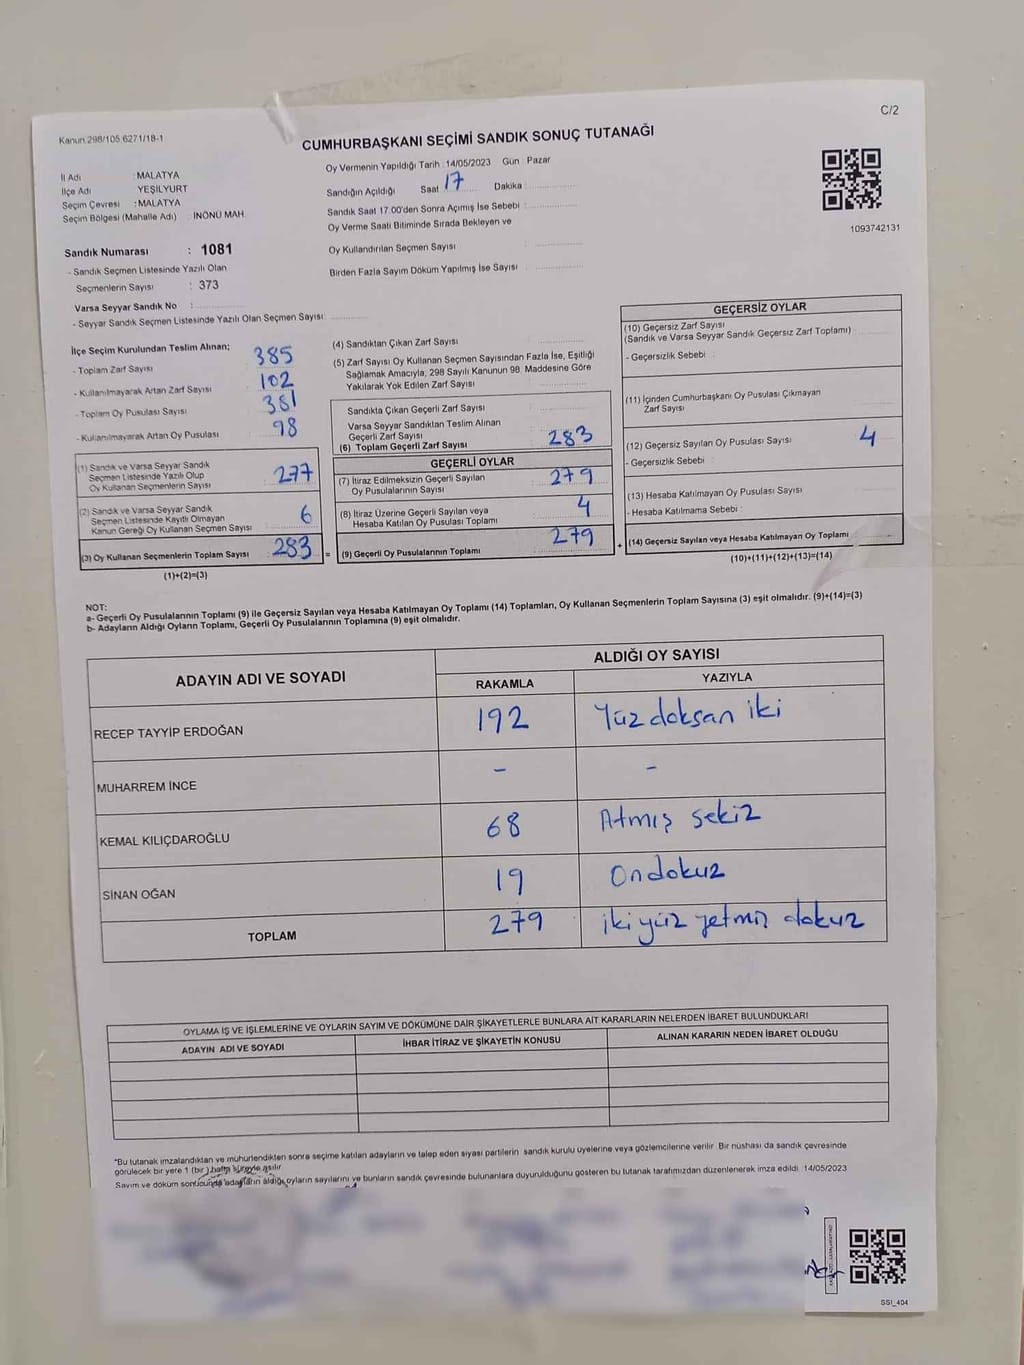 C/2
Kanun 298/105,6271/18-1
CUMHURBAŞKANI SEÇİMİ SANDIK SONUÇ TUTANAĞI
İl Adı : MALATYA
İlçe Adı : YEŞİLYURT
Seçim Çevresi : MALATYA
Seçim Bölgesi (Mahalle Adı) : İNÖNÜ MAH.
Sandık Numarası : 1081
- Sandık Seçmen Listesinde Yazılı Olan
Seçmenlerin Sayısı : 373
Varsa Seyyar Sandık No :
- Seyyar Sandık Seçmen Listesinde Yazılı Olan Seçmen Sayısı
Oy Vermenin Yapıldığı Tarih : 14/05/2023 Gün Pazar
Sandığın Açıldığı Saat 17 Dakika :
Sandık Saat 17:00'den Sonra Açımış İse Sebebi :
Oy Verme Saati Bitiminde Sırada Bekleyen ve
Oy Kullandırılan Seçmen Sayısı :
Birden Fazla Sayım Döküm Yapılmış İse Sayısı :
1093742131
İlçe Seçim Kurulundan Teslim Alınan;
- Toplam Zarf Sayısı 385
- Kullanılmayarak Artan Zarf Sayısı 102
- Toplam Oy Pusulası Sayısı 381
- Kullanılmayarak Artan Oy Pusulası 98
(1) Sandık ve Varsa Seyyar Sandık
Seçmen Listesinde Yazılı Olup
Oy Kullanan Seçmenlerin Sayısı 277
(2) Sandık ve Varsa Seyyar Sandık
Seçmen Listesinde Kayıtlı Olmayan
Kanun Gereği Oy Kullanan Seçmen Sayısı 6
(3) Oy Kullanan Seçmenlerin Toplam Sayısı 283 =
(1)+(2)=(3)
(4) Sandıktan Çıkan Zarf Sayısı :
(5) Zarf Sayısı Oy Kullanan Seçmen Sayısından Fazla İse, Eşitliği
Sağlamak Amacıyla, 298 Sayılı Kanunun 98. Maddesine Göre
Yakılarak Yok Edilen Zarf Sayısı :
Sandıkta Çıkan Geçerli Zarf Sayısı
Varsa Seyyar Sandıktan Teslim Alınan
Geçerli Zarf Sayısı
(6) Toplam Geçerli Zarf Sayısı 283
GEÇERLİ OYLAR
(7) İtiraz Edilmeksizin Geçerli Sayılan
Oy Pusulalarının Sayısı 279
(8) İtiraz Üzerine Geçerli Sayılan veya
Hesaba Katılan Oy Pusulası Toplamı 4
(9) Geçerli Oy Pusulalarının Toplamı 279 +
GEÇERSİZ OYLAR
(10) Geçersiz Zarf Sayısı
(Sandık ve Varsa Seyyar Sandık Geçersiz Zarf Toplamı)
- Geçersizlik Sebebi :
(11) İçinden Cumhurbaşkanı Oy Pusulası Çıkmayan
Zarf Sayısı
(12) Geçersiz Sayılan Oy Pusulası Sayısı 4
- Geçersizlik Sebebi :
(13) Hesaba Katılmayan Oy Pusulası Sayısı
- Hesaba Katılmama Sebebi :
(14) Geçersiz Sayılan veya Hesaba Katılmayan Oy Toplamı
(10)+(11)+(12)+(13)=(14)
NOT:
a- Geçerli Oy Pusulalarının Toplamı (9) ile Geçersiz Sayılan veya Hesaba Katılmayan Oy Toplamı (14) Toplamları, Oy Kullanan Seçmenlerin Toplam Sayısına (3) eşit olmalıdır. (9)+(14)=(3)
b- Adayların Aldığı Oyların Toplamı, Geçerli Oy Pusulalarının Toplamına (9) eşit olmalıdır.
ADAYIN ADI VE SOYADI ALDIĞI OY SAYISI
RAKAMLA YAZIYLA
RECEP TAYYİP ERDOĞAN 192 Yüz doksan iki
MUHARREM İNCE - -
KEMAL KILIÇDAROĞLU 68 Atmış sekiz
SİNAN OĞAN 19 Ondokuz
TOPLAM 279 iki yüz yetmiş dokuz
OYLAMA İŞ VE İŞLEMLERİNE VE OYLARIN SAYIM VE DÖKÜMÜNE DAİR ŞİKAYETLERLE BUNLARA AİT KARARLARIN NELERDEN İBARET BULUNDUKLARI
ADAYIN ADI VE SOYADI İHBAR İTİRAZ VE ŞİKAYETİN KONUSU ALINAN KARARIN NEDEN İBARET OLDUĞU
*Bu tutanak imzalandıktan ve mühürlendikten sonra seçime katılan adayların ve talep eden siyasi partilerin sandık kurulu üyelerine veya gözlemcilerine verilir. Bir nüshası da sandık çevresinde
görülecek bir yere 1 (bir) hafta süreyle asılır.
Sayım ve döküm sonucunda adayların aldığı oyların sayılarını ve bunların sandık çevresinde bulunanlara duyurulduğunu gösteren bu tutanak tarafımızdan düzenlenerek imza edildi. 14/05/2023
SSI_404